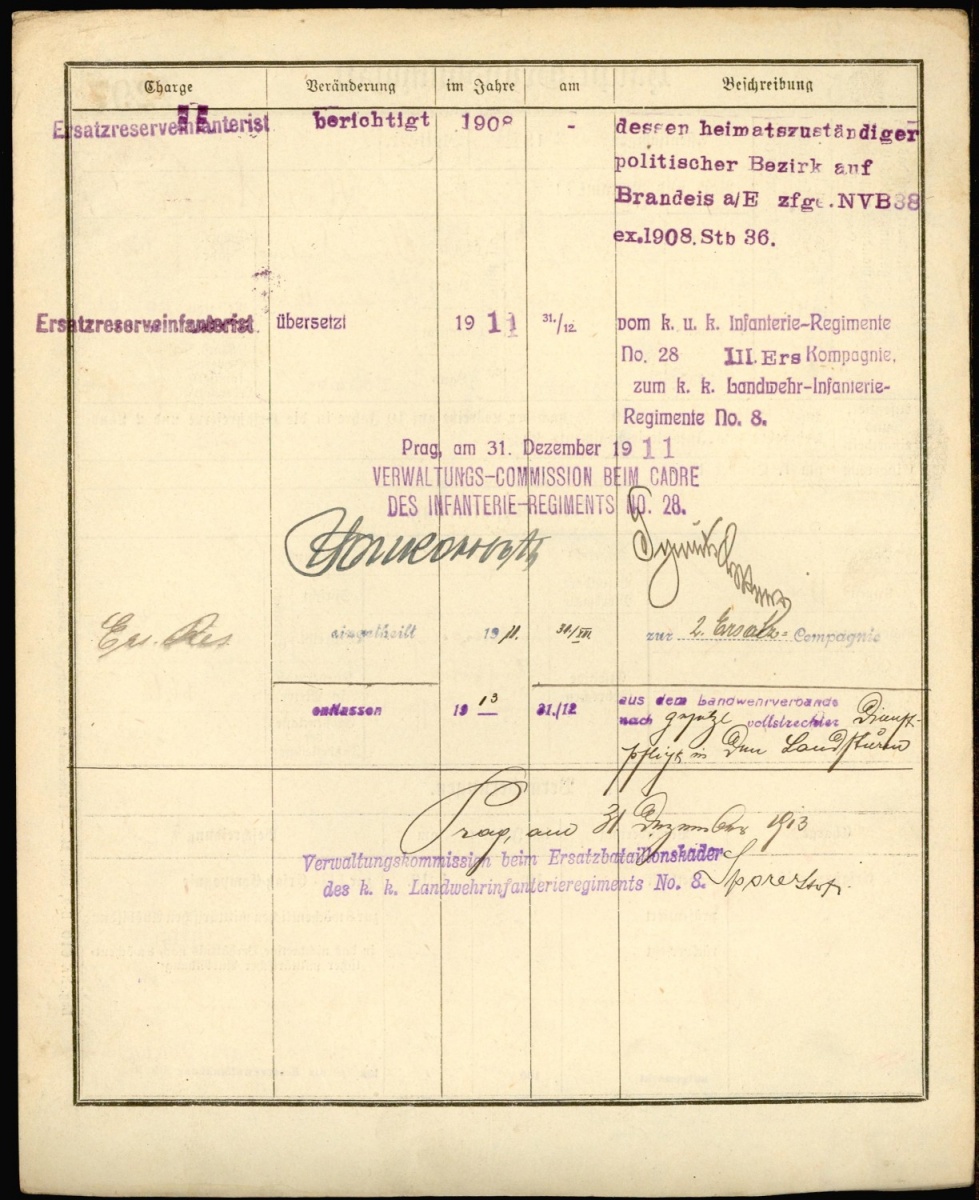 Charge Veränderung im Jahre am Beschreibung
Ersatzreserveinfanterist berichtigt 1908 - dessen heimatszuständiger
politischer Bezirk auf
Brandeis a/E zfge. NVB 38
ex. 1908. Stb 36.
Ersatzreserveinfanterist. übersetzt 1911 31./12. vom k. u. k. Infanterie-Regimente
No. 28 III. Ers Kompagnie,
zum k. k. Landwehr-Infanterie-
Regimente No. 8.
Prag, am 31. Dezember 1911
VERWALTUNGS-COMMISSION BEIM CADRE
DES INFANTERIE-REGIMENTS NO. 28.
Ers. Res eingetheilt 1911. 31./XII. zur 2. Ersatz- Compagnie
entlassen 1913 31./12 aus dem Landwehrverbande
nach gesetzl vollstreckter Dienst-
pflicht in den Landsturm
Prag, am 31 Dezember 1913
Verwaltungskommission beim Ersatzbataillonskader
des k. k. Landwehrinfanterieregiments No. 8.